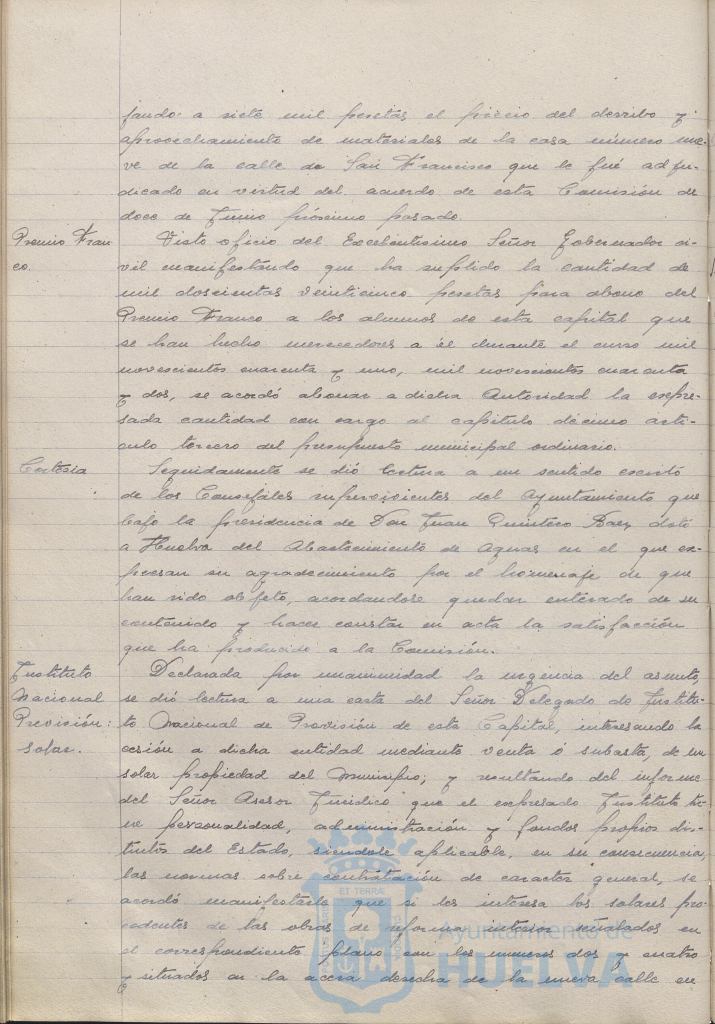 jando a siete mil pesetas el precio del derribo y
aprovechamiento de materiales de la casa número nue-
ve de la calle de San Francisco que le fué adju-
dicado en virtud del acuerdo de esta Comisión de
doce de Junio próximo pasado.
Premio Fran
co.
Visto oficio del Excelentisimo Señor Gobernador ci-
vil manifestando que ha suplido la cantidad de
mil doscientas veinticinco pesetas para abono del
Premio Franco a los alumnos de esta capital que
se han hecho merecedores a él durante el curso mil
novecientos cuarenta y uno, mil novecientos cuarenta
y dos, se acordó abonar a dicha Autoridad la expre-
sada cantidad con cargo al capitulo décimo arti-
culo tercero del presupuesto municipal ordinario.
Cortesia
Seguidamente se dió lectura a un sentido escrito
de los Concejales supervivientes del Ayuntamiento que
bajo la presidencia de Don Juan Quintero Baez dotó
a Huelva del Abastecimiento de Aguas en el que ex-
presan su agradecimiento por el homenaje de que
han sido objeto, acordandose quedar enterado de su
contenido y hacer constar en acta la satisfacción
que ha producido a la Comisión.
Instituto
Nacional
Previsión:
solar.
Declarada por unanimidad la urgencia del asunto,
se dió lectura a una carta del Señor Delegado de Institu-
to Nacional de Previsión de esta Capital, interesando la
cesión a dicha entidad mediante venta ó subasta, de un
solar propiedad del Municipio; y resultando del informe
del Señor Asesor Juridico que el expresado Instituto tie-
ne personalidad, administración y fondos propios dis-
tintos del Estado, siendole aplicable, en su consecuencia,
las normas sobre contratación de caracter general, se
acordó manifestarle que si les interesa los solares pro-
cedentes de las obras de reforma interior señalados en
el correspondiente plano con los numeros dos y cuatro
y situados en la acera derecha de la nueva calle en
ET TERRÆ
Ayuntamiento de
HUELVA